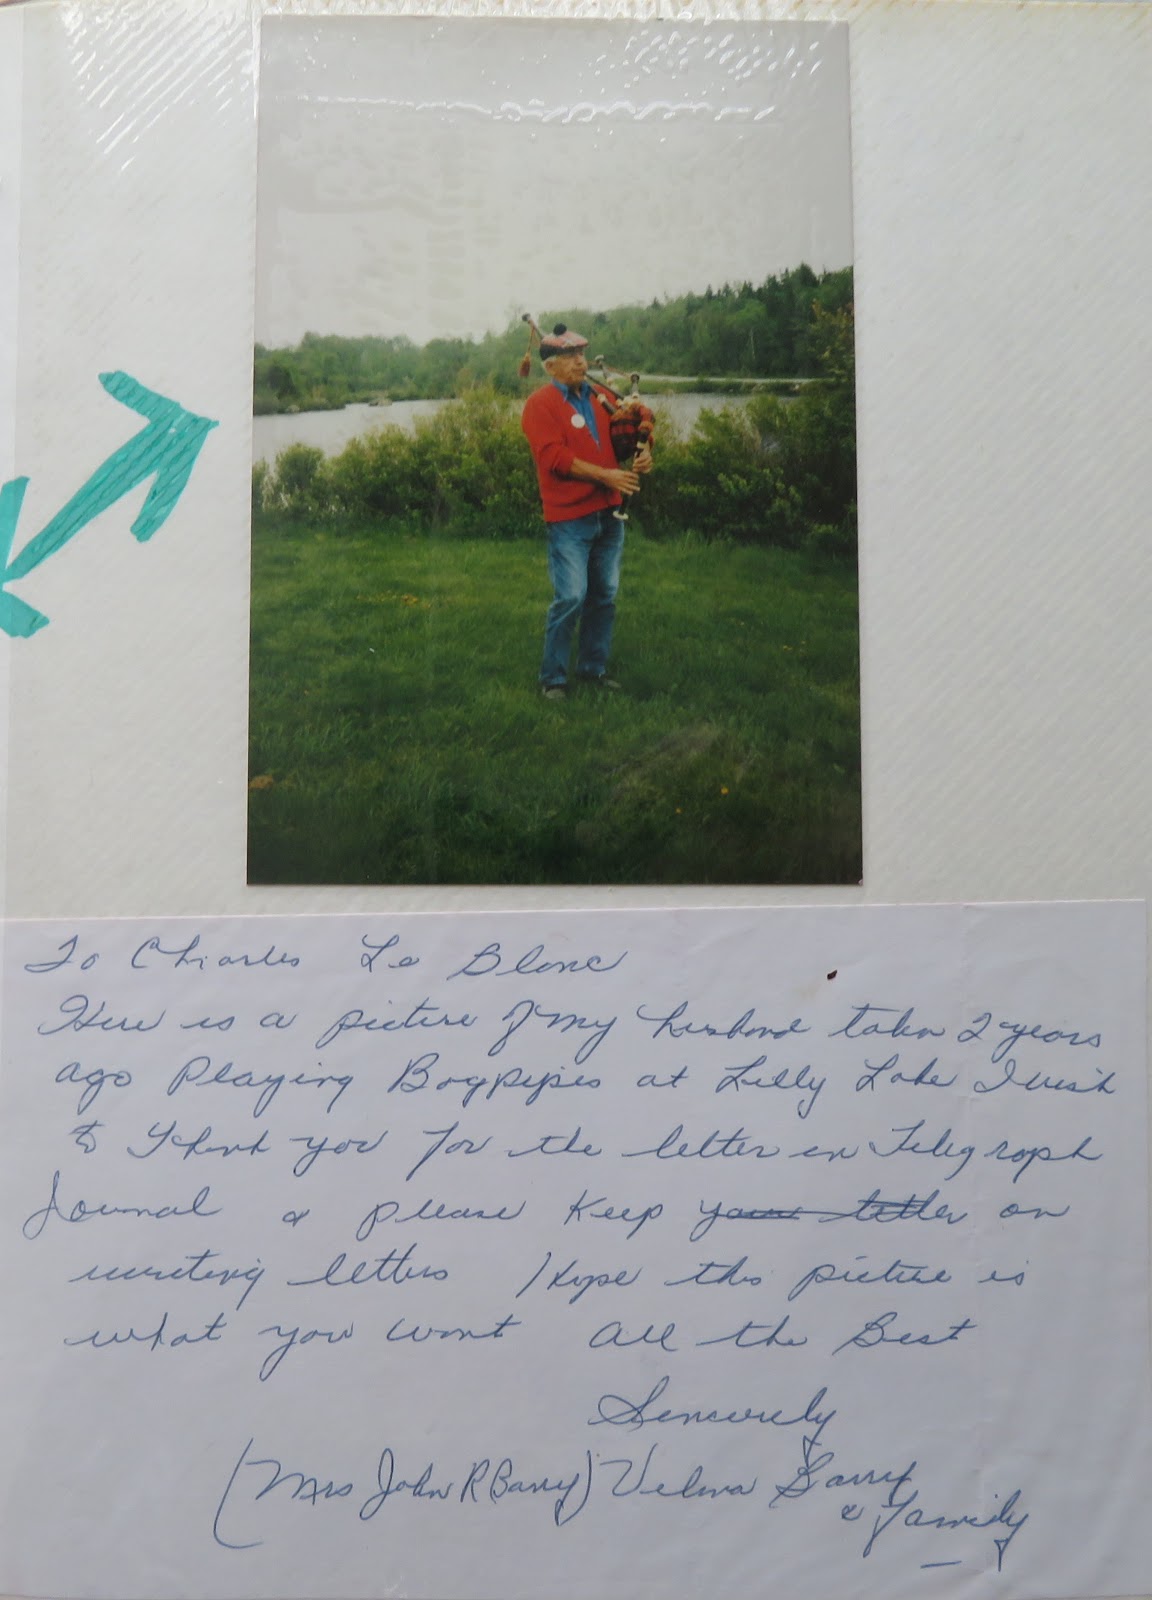 To Charles Le Blanc
Here is a picture of my husband taken 2 years
ago Playing Bagpipes at Lilly Lake I wish
to Thank you for the letter in Telegraph
Journal & please Keep your letter on
writing letters I hope this picture is
what you want All the Best
Sincerely
(Mrs John R Barry) Velma Barry
& Family